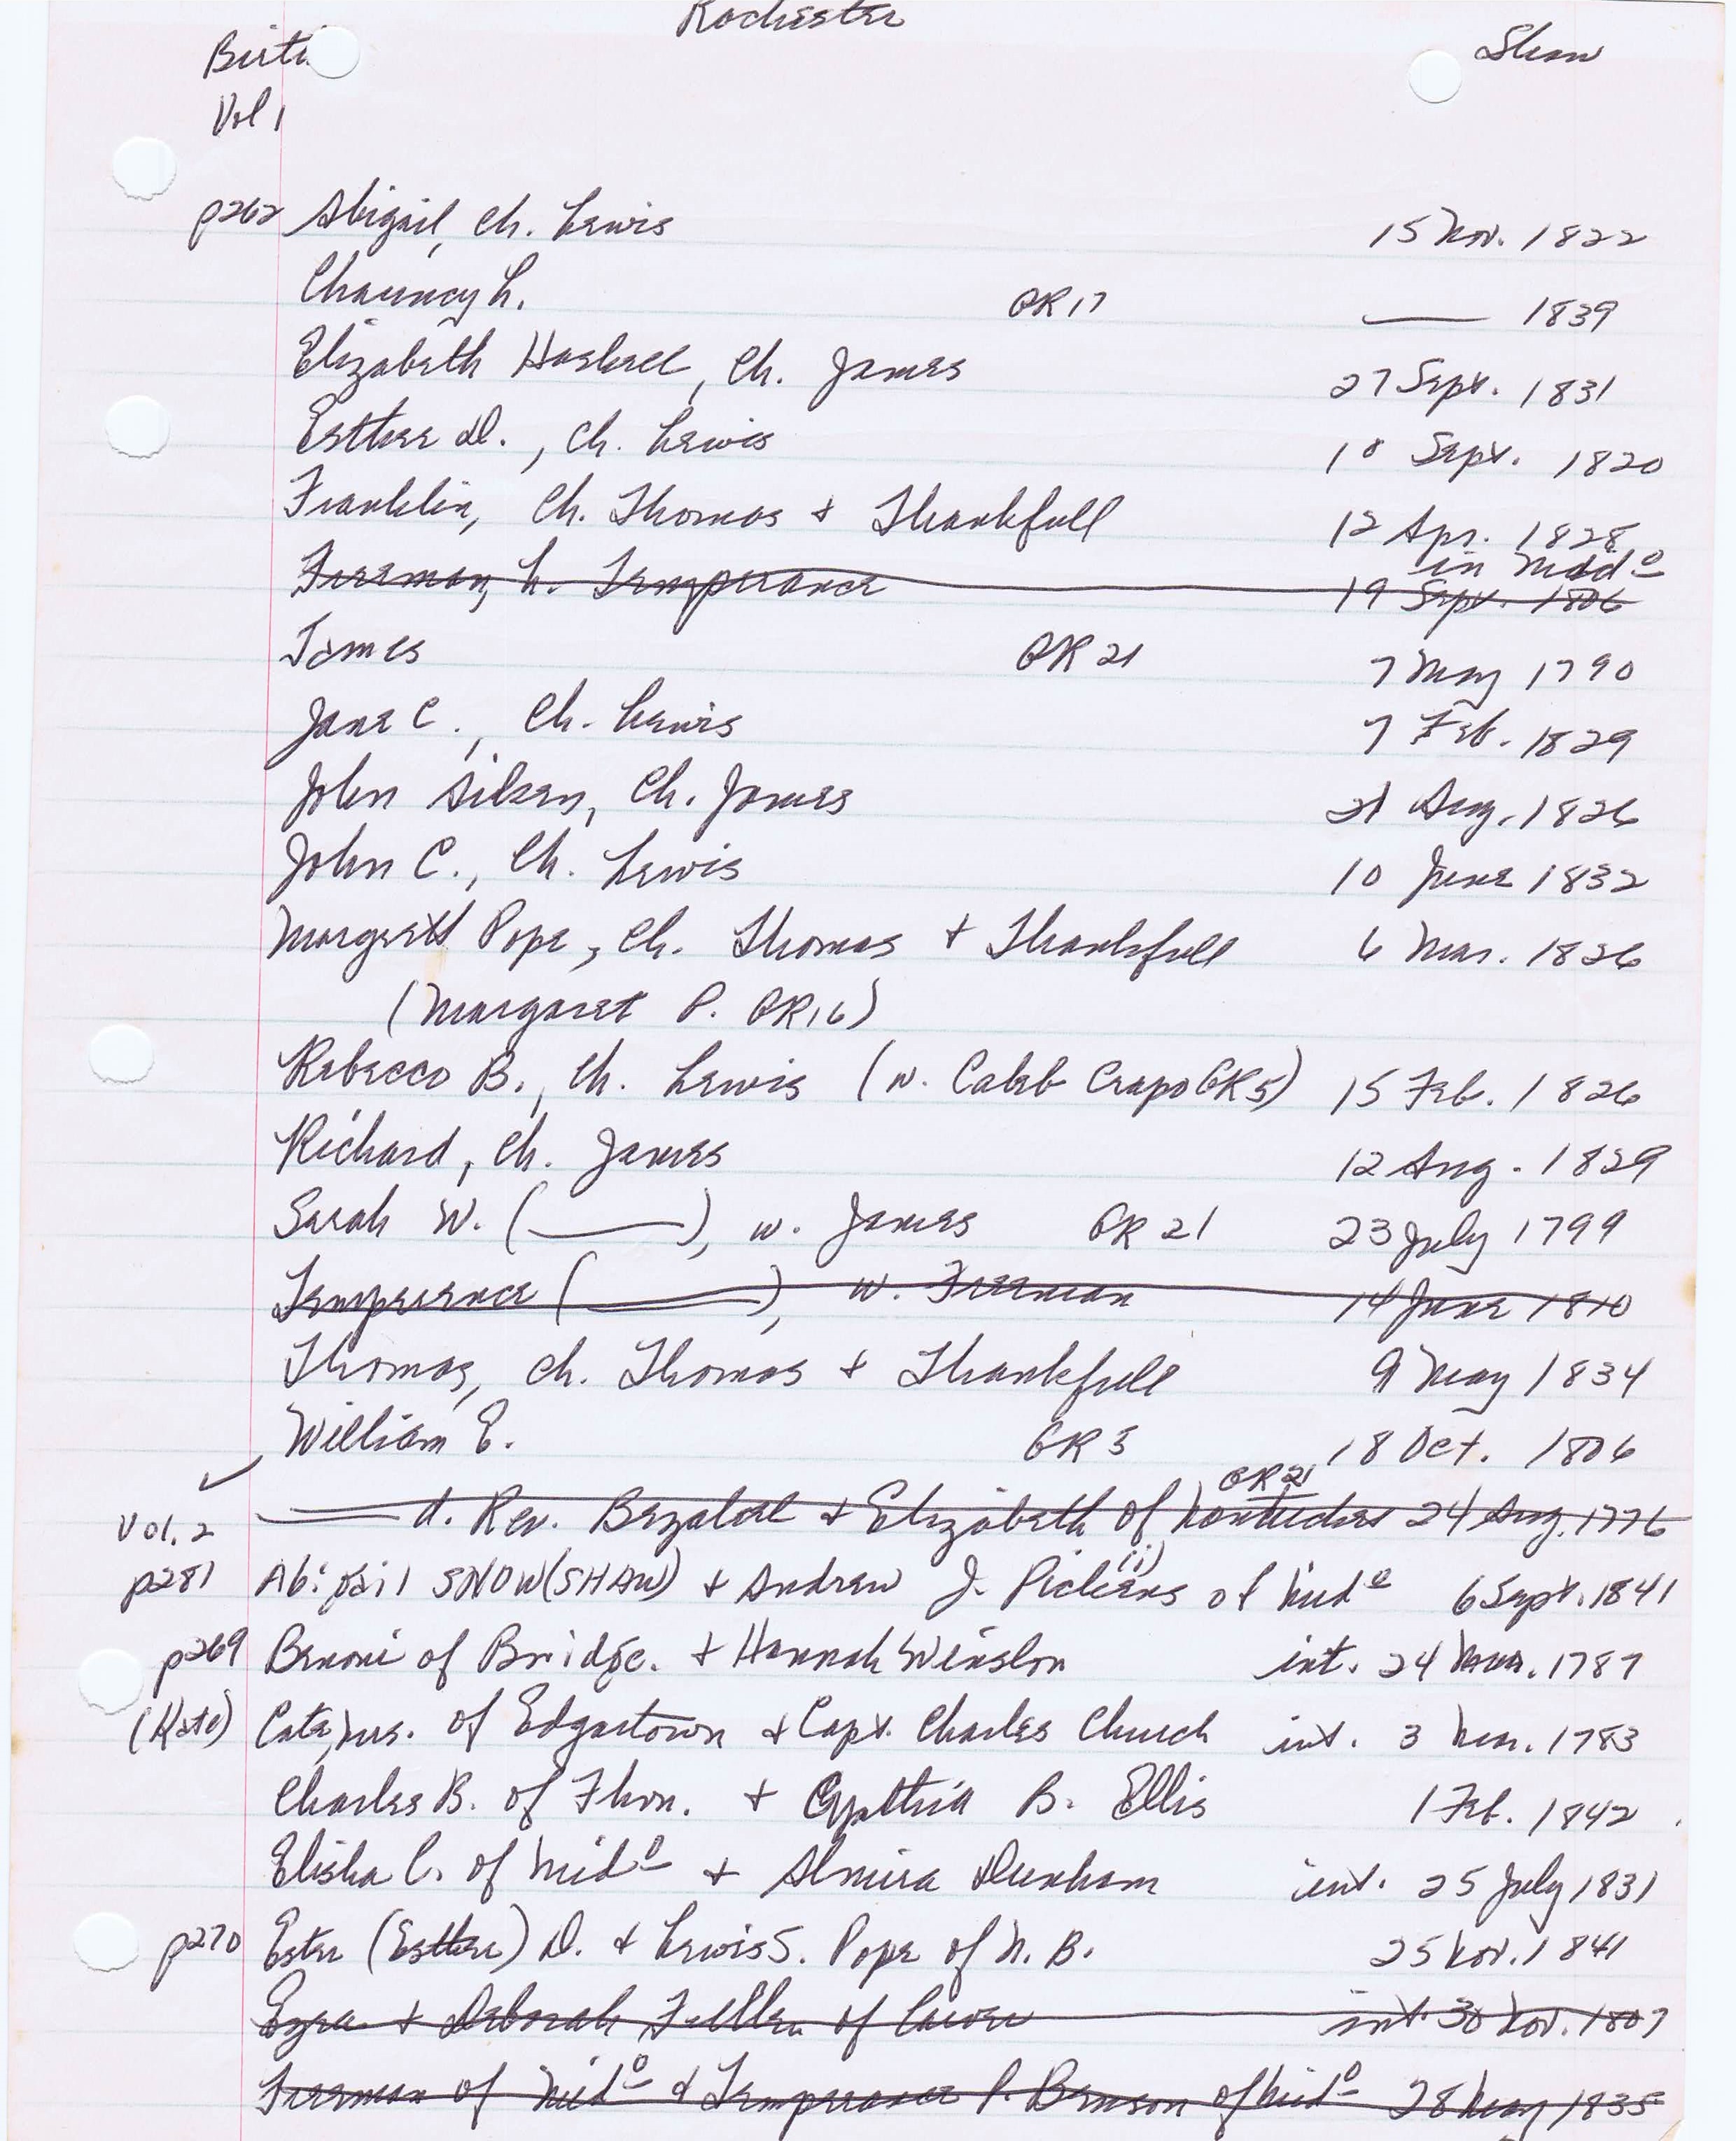 Rochester
Birt Shaw
Vol 1
p262 Abigail, Ch. Lewis 15 Nov. 1822
Chauncy L. GR 17 — 1839
Elizabeth Haskell, Ch. James 27 Sept. 1831
Esther D., Ch. Lewis 18 Sept. 1820
Franklin, Ch. Thomas + Thankfull 12 Apr. 1828
in Midd⁰
Freeman, h. Temperance 19 Sept. 1806
James GR 21 7 May 1790
Jane C., Ch. Lewis 7 Feb. 1829
John Allen, Ch. James 21 Aug. 1826
John C., Ch. Lewis 10 June 1832
Margarett Pope, Ch. Thomas + Thankfull 6 Mar. 1826
(Margaret P. GR 16)
Rebecca B., Ch. Lewis (w. Caleb Crapo GR 5) 15 Feb. 1826
Richard, Ch. James 12 Aug. 1829
Sarah W. (——), w. James GR 21 23 July 1799
Temperance (——), w. Freeman 14 June 1810
Thomas, Ch. Thomas + Thankfull 9 May 1834
William E. GR 3 18 Oct. 1806
GR 21
✓ —— d. Rev. Bezaleel + Elizabeth of 24 Aug. 1776
Vol. 2
p281 Abigail SNOW (SHAW) + Andrew J. Pickens (ii) of Mid⁰ 6 Sept. 1841
p269 Benoni of Bridge. + Hannah Winslow int. 24 Mar. 1787
(Kate) Cate, Mrs. of Edgartown + Capt. Charles Church int. 3 Mar. 1783
Charles B. of Fhvn. + Cynthia B. Ellis 1 Feb. 1842
Elisha C. of Mid⁰ + Almira Dunham int. 25 July 1831
p270 Ester (Esther) D. + Lewis S. Pope of N. B. 25 Nov. 1841
Ezra + Deborah Fuller of Carver int. 30 Nov. 1807
Freeman of Mid⁰ + Temperance P. Benson of Mid⁰ 28 May 1835